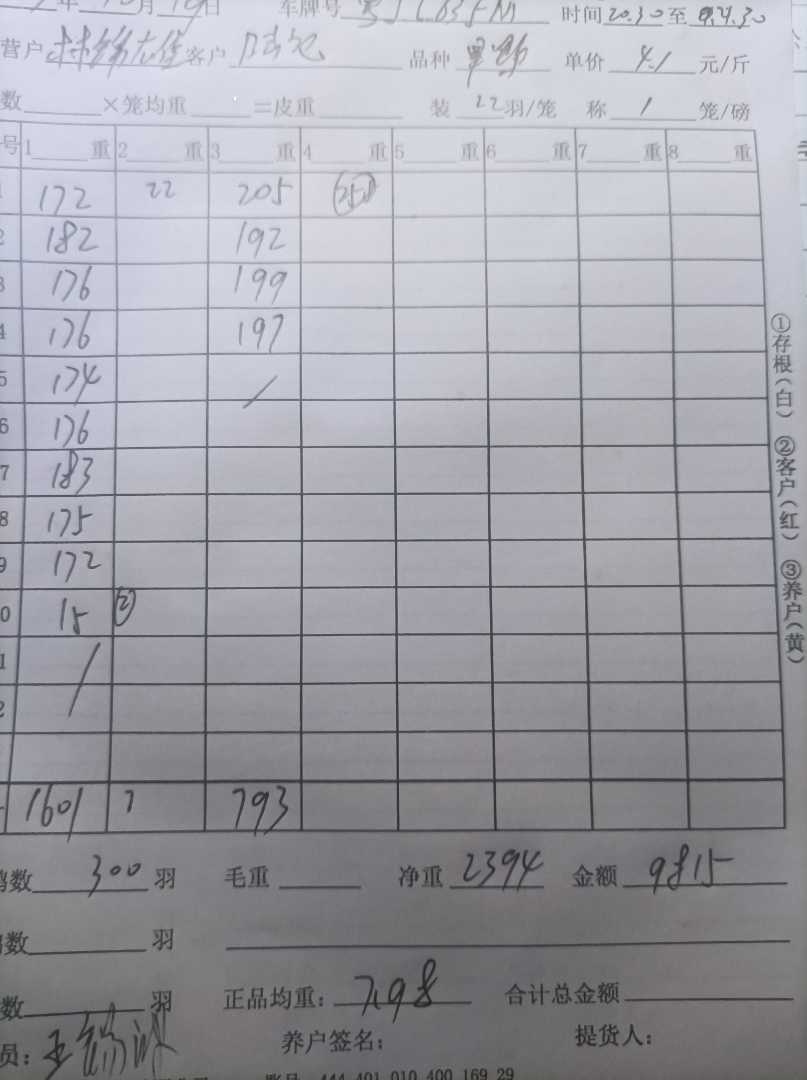 年 月 日 车牌号 时间 20.30 至 9.4.30
营户 客户 品种 单价 4.1 元/斤
数 ×笼均重 =皮重 装 22 羽/笼 称 1 笼/磅
号 1 重 2 重 3 重 4 重 5 重 6 重 7 重 8 重
172 22 205
2 182 192
3 176 199
4 176 197
5 174 /
6 176
7 183
8 175
9 172
0 15 ②
1 /
2
1601 793
鸡数 300 羽 毛重 净重 2394 金额 9815
数 羽
数 羽 正品均重: 7.98 合计总金额
员: 养户签名: 提货人:
444 401 010 400 169 29
①存根(白) ②客户(红) ③养户(黄)